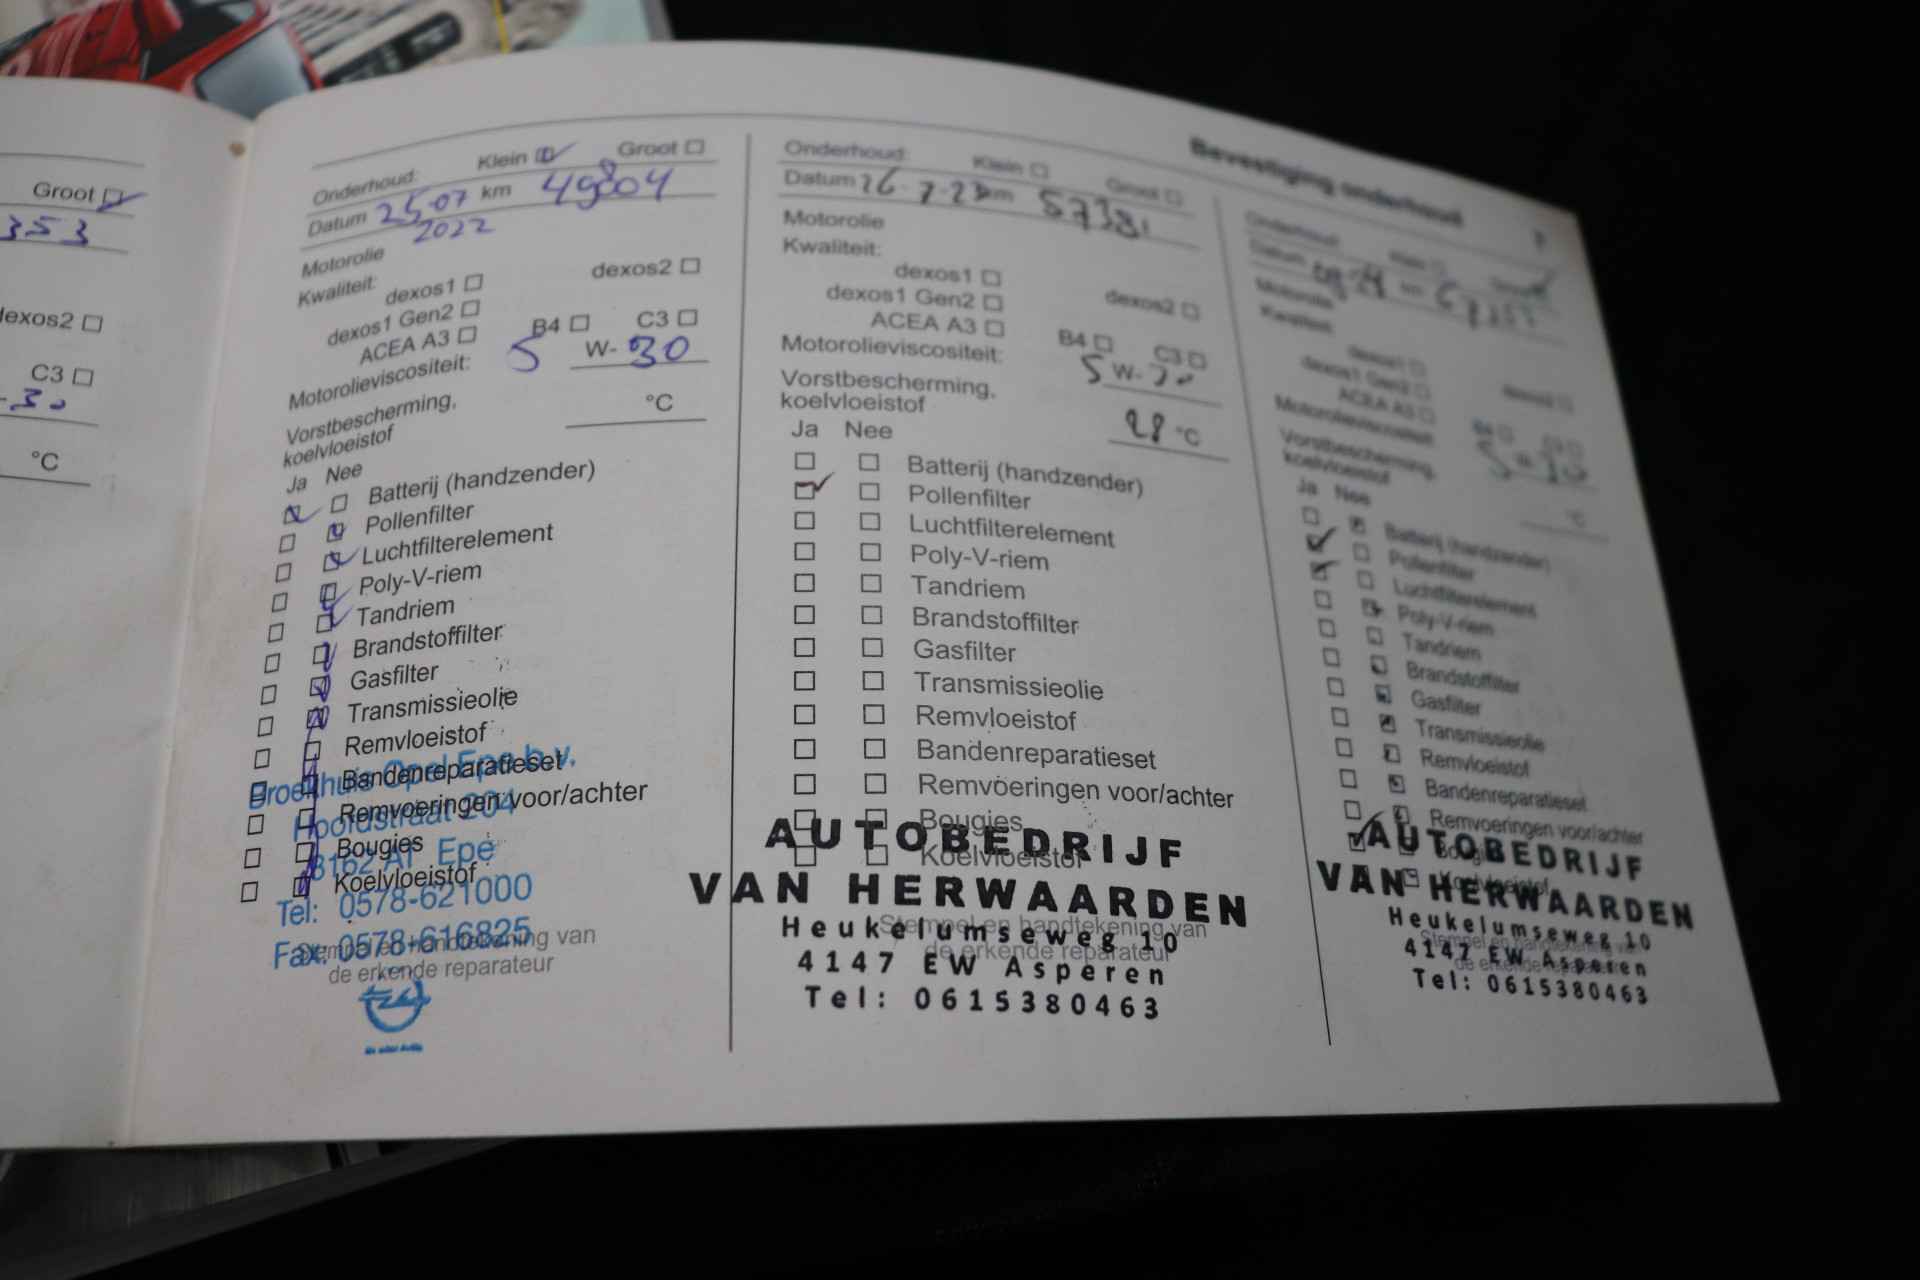 Groot
353
dexos2
C3
°C
Onderhoud: Klein Groot
Datum 25-07 km 49804
2022
Motorolie
Kwaliteit:
dexos1 dexos2
dexos1 Gen2
ACEA A3 B4 C3
Motorolieviscositeit: 5 W- 30
Vorstbescherming,
koelvloeistof °C
Ja Nee
Batterij (handzender)
Pollenfilter
Luchtfilterelement
Poly-V-riem
Tandriem
Brandstoffilter
Gasfilter
Transmissieolie
Remvloeistof
Bandenreparatieset
Remvoeringen voor/achter
Bougies
Koelvloeistof
Broekhuis Opel Epe b.v.
Hoofdstraat 204
8162 AT Epe
Tel: 0578-621000
Fax: 0578-616825
Stempel en handtekening van
de erkende reparateur
Onderhoud: Klein Groot
Datum 26-7-23 km 57381
Motorolie
Kwaliteit:
dexos1
dexos1 Gen2 dexos2
ACEA A3 B4 C3
Motorolieviscositeit: 5 W-
Vorstbescherming,
koelvloeistof 28 °C
Ja Nee
Batterij (handzender)
Pollenfilter
Luchtfilterelement
Poly-V-riem
Tandriem
Brandstoffilter
Gasfilter
Transmissieolie
Remvloeistof
Bandenreparatieset
Remvoeringen voor/achter
Bougies
Koelvloeistof
AUTOBEDRIJF
VAN HERWAARDEN
Heukelumseweg 10
4147 EW Asperen
Tel: 0615380463
Stempel en handtekening van
de erkende reparateur
Bevestiging onderhoud
Onderhoud: Klein
Datum km
Motorolie
Kwaliteit:
dexos1
dexos1 Gen2 dexos2
ACEA A3 B4
Motorolieviscositeit: 5
Vorstbescherming,
koelvloeistof °C
Ja Nee
Batterij (handzender)
Pollenfilter
Luchtfilterelement
Poly-V-riem
Tandriem
Brandstoffilter
Gasfilter
Transmissieolie
Remvloeistof
Bandenreparatieset
Remvoeringen voor/achter
Bougies
Koelvloeistof
AUTOBEDRIJF
VAN HERWAARDEN
Heukelumseweg 10
4147 EW Asperen
Tel: 0615380463
Stempel en handtekening van
de erkende reparateur